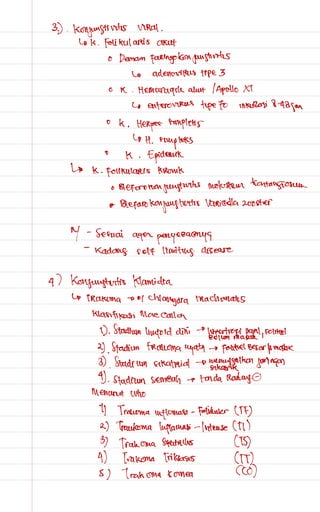 3). Konjungtivitis Viral.
↳ K. Folikularis akut
o Demam Faringokonjungtivitis
↳ adenovirus tipe 3
o K. Hemoragik akut / Apollo XI
↳ enterovirus tipe 70 inkubasi 8-48 jam
o K. Herpes simpleks
↳ H. simpleks
• K. Epidemik
↳ K. Folikularis kronik
• Blefarokonjungtivitis moluskum kontangiosum
• Blefarokonjungtivitis Varisella zooster
- Sesuai agen penyebabnya
- Kadang self limiting disease
4) Konjungtivitis Klamidia
↳ Trakoma → Chlamydia trachomatis
Klasifikasi Mac Callan
1). Stadium limfoid dini → hipertropi papil, folikel belum masak
2). Stadium Trakoma nyata → Folikel besar
3). Stadium sikatrial → jaringan sikatrik
4). Stadium sembuh → tanda Radang ⊖
Menurut WHO
1) Trauma inflamasi - Folikuler (TF)
2) Trakoma Inflamasi - Intense (TI)
3) Trakoma Sikatriks (TS)
4) Trakoma Trikiasis (TT)
5) Trakoma Kornea (CO)